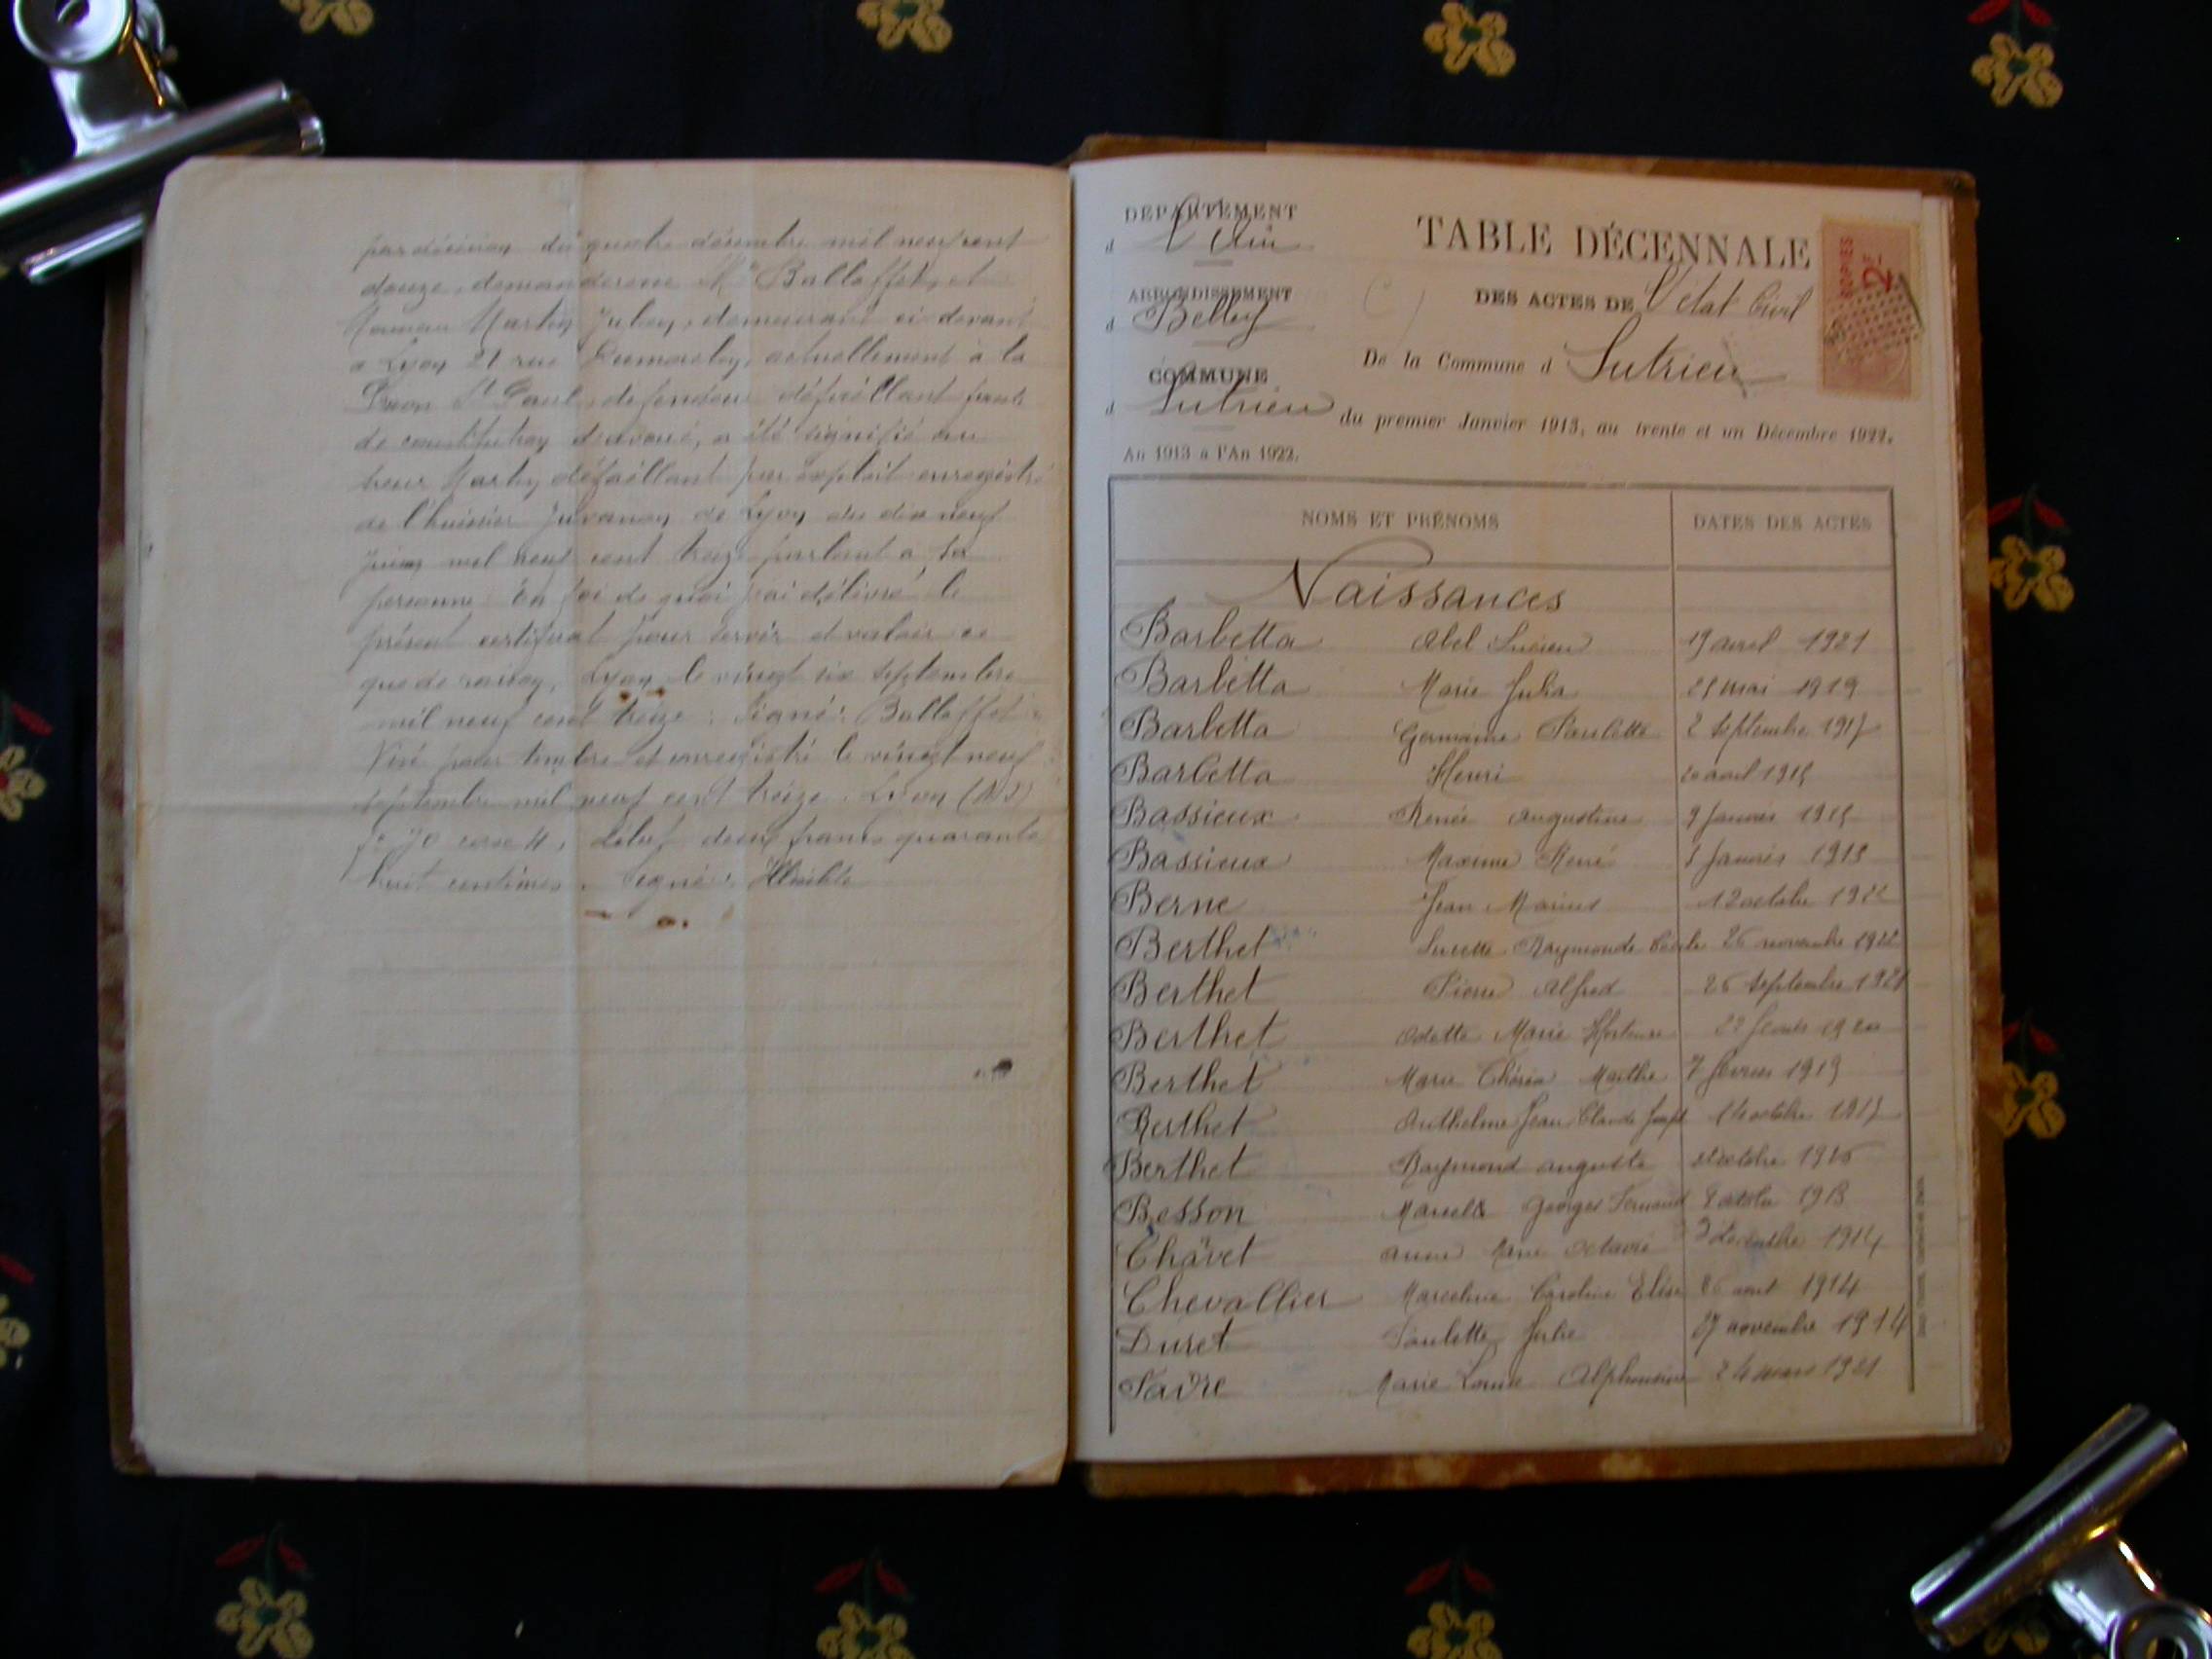 par décision du quatre décembre mil neuf cent
douze, demanderesse Me Ballaffet, et
Martin Julien, demeurant ci-devant
à Lyon 21 rue Dumarclay, actuellement à la
St Paul, défendeur défaillant faute
de constitution d'avoué, a été signifié au
sieur Martin défaillant par exploit enregistré
de l'huissier Juvanon de Lyon du dix neuf
juin mil neuf cent treize parlant à sa
personne. En foi de quoi j'ai délivré le
présent certificat pour servir et valoir ce
que de raison, Lyon le vingt six septembre
mil neuf cent treize. Signé: Ballaffet.
Visé pour timbre et enregistré le vingt neuf
septembre mil neuf cent treize. Lyon
fo 70 case 4, deux francs quarante
huit centimes. Signé: Illisible
DÉPARTEMENT
d L'Ain
ARRONDISSEMENT
d Belley
COMMUNE
d Sutrieu
An 1913 à l'An 1922.
TABLE DÉCENNALE
DES ACTES DE l'état Civil
De la Commune d Sutrieu
du premier Janvier 1913, au trente et un Décembre 1922.
COPIES
2F
NOMS ET PRÉNOMS DATES DES ACTES
Naissances
Barbetta Abel Lucien 19 avril 1921
Barbetta Marie Julia mai 1919
Barbetta Germaine Paulette 2 septembre 1917
Barbetta Henri avril 1915
Bassieux Renée Augustine 9 Janvier 1915
Bassieux Maxime René Janvier 1913
Berne Jean Marius 12 octobre 1922
Berthet Lucette Raymonde Cécile 26 novembre 1922
Berthet Pierre Alfred 26 septembre 1921
Berthet Odette Marie Hortense 22 février 1920
Berthet Marie Thérèse Marthe 7 février 1919
Berthet Anthelme Jean Claude Joseph 14 octobre 1917
Berthet Raymond Auguste octobre 1916
Besson Marcelle Georges Fernand 8 octobre 1913
Chavet Anne Marie Octavie 3 décembre 1914
Chevallier Marceline Caroline Elise 26 août 1914
Duret Paulette Julie 27 novembre 1914
Favre Marie Louise Alphonsine 24 mars 1921